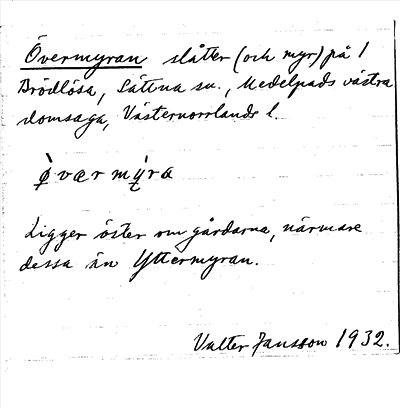 Övermyran slåtter (och myr) på 1
Brödlösa, Sättna sn., Medelpads västra
domsaga, Västernorrlands l.
ø̀værmỳ̨ra
Ligger öster om gårdarna, närmare
dessa än Yttermyran.
Valter Jansson 1932.